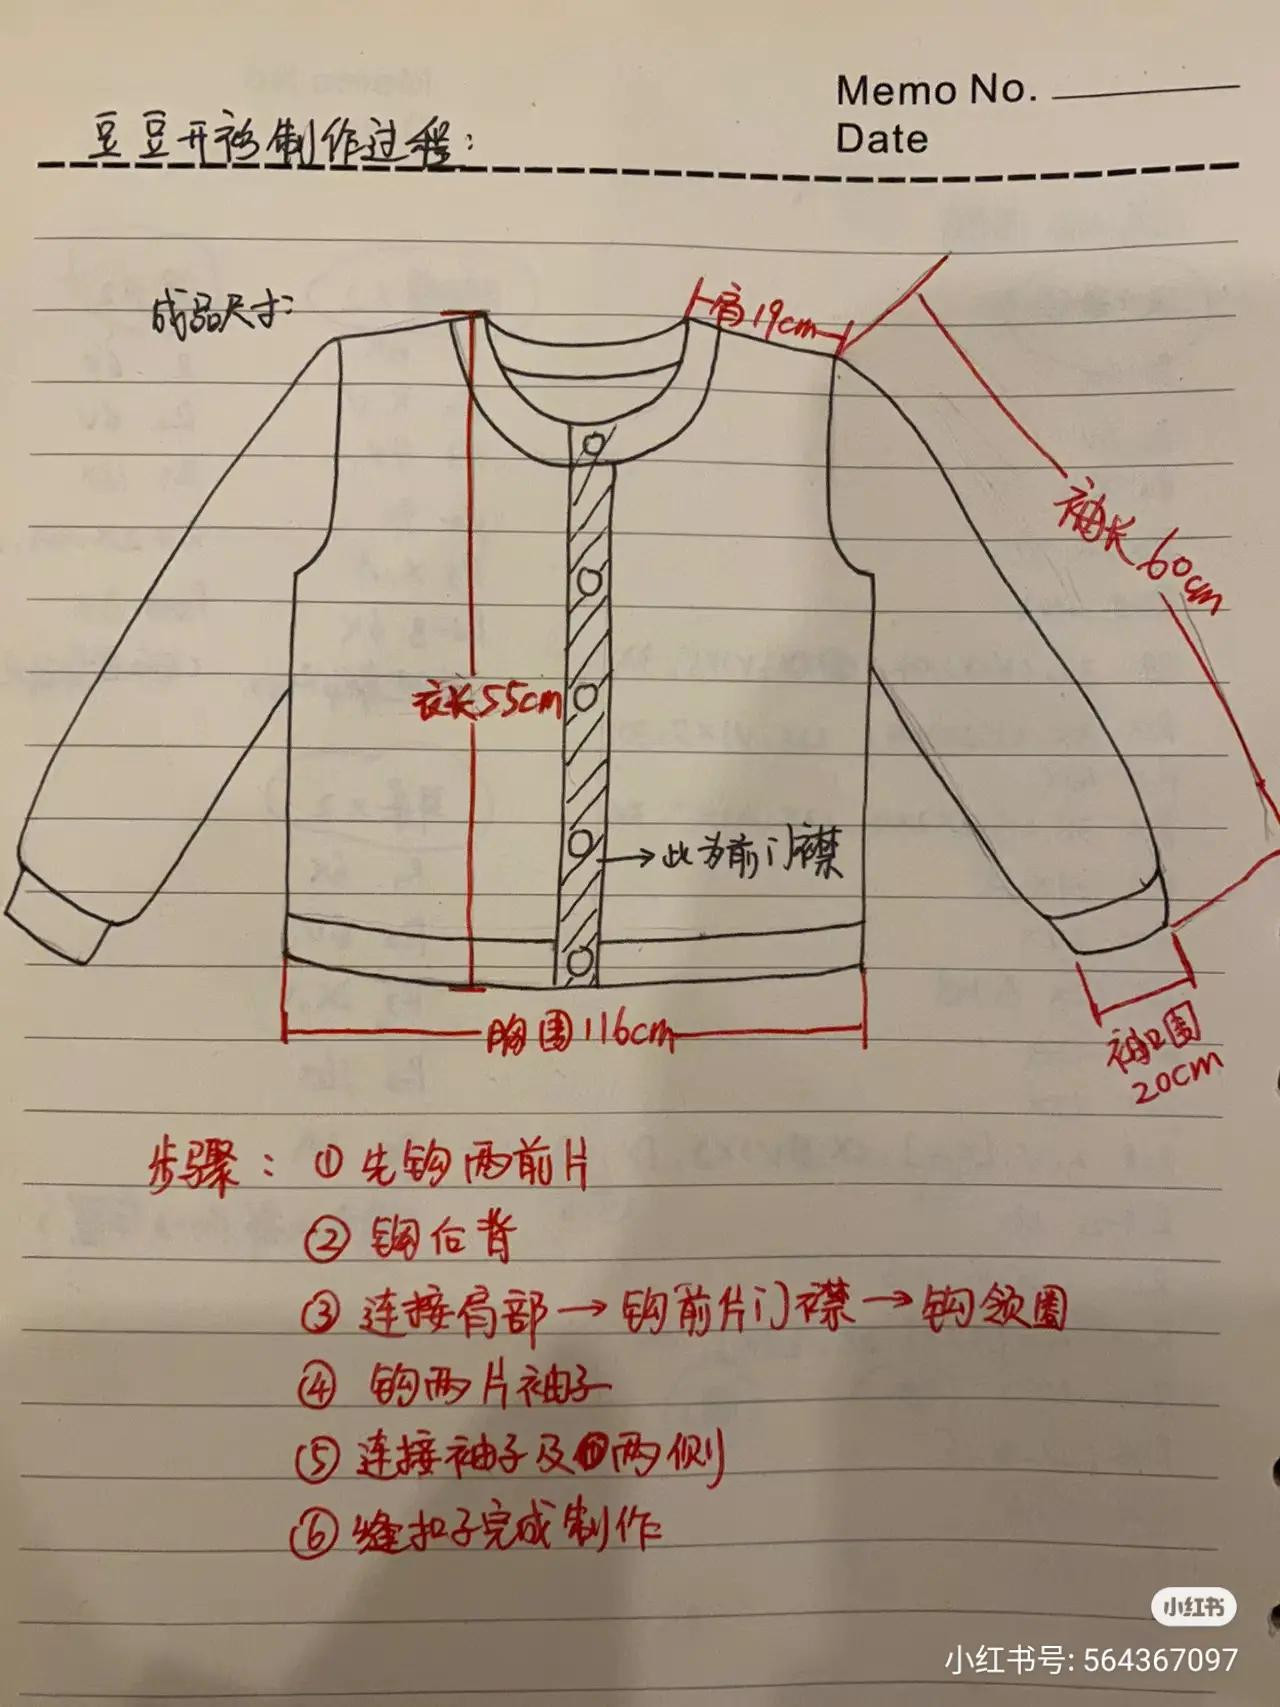 Memo No.
Date
豆豆开衫制作过程:
成品尺寸:
肩19cm
袖长60cm
衣长55cm
此为前门襟
胸围116cm
袖口围
20cm
步骤: ①先钩两前片
②钩后背
③连接肩部→钩前片门襟→钩领圈
④钩两片袖子
⑤连接袖子及两侧
⑥缝扣子完成制作
小红书
小红书号: 564367097